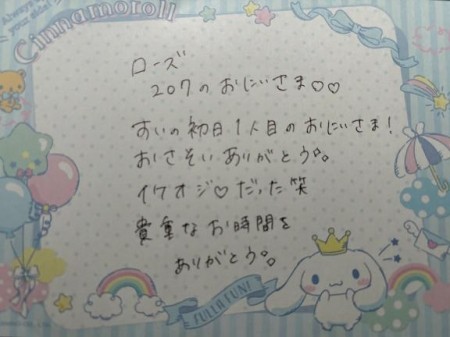 Cinnamoroll
ローズ
207のおにいさま♡♡
すいの初日1人目のおにいさま!
おさそいありがとう。
イケオジ♡だった笑
貴重なお時間を
ありがとう。
FULL OF FUN!